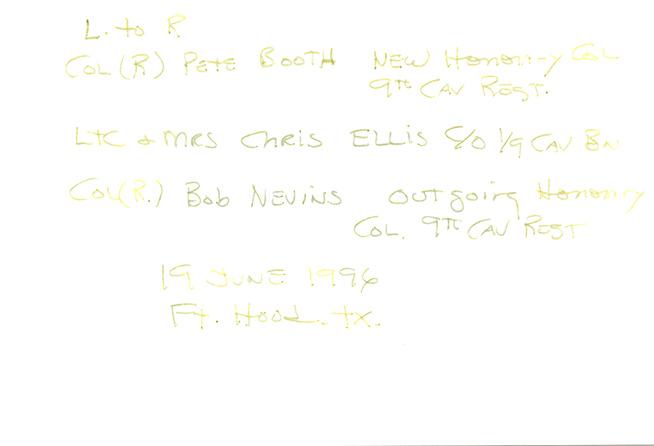 L. to R.
COL(R) PETE BOOTH NEW Honorary COL
9TH CAV REGT.
LTC & MRS CHRIS ELLIS C/O 1/9 CAV BN
COL(R.) Bob NEVINS OUTgoing Honorary
COL. 9TH CAV REGT
19 JUNE 1996
Ft. Hood. tx.